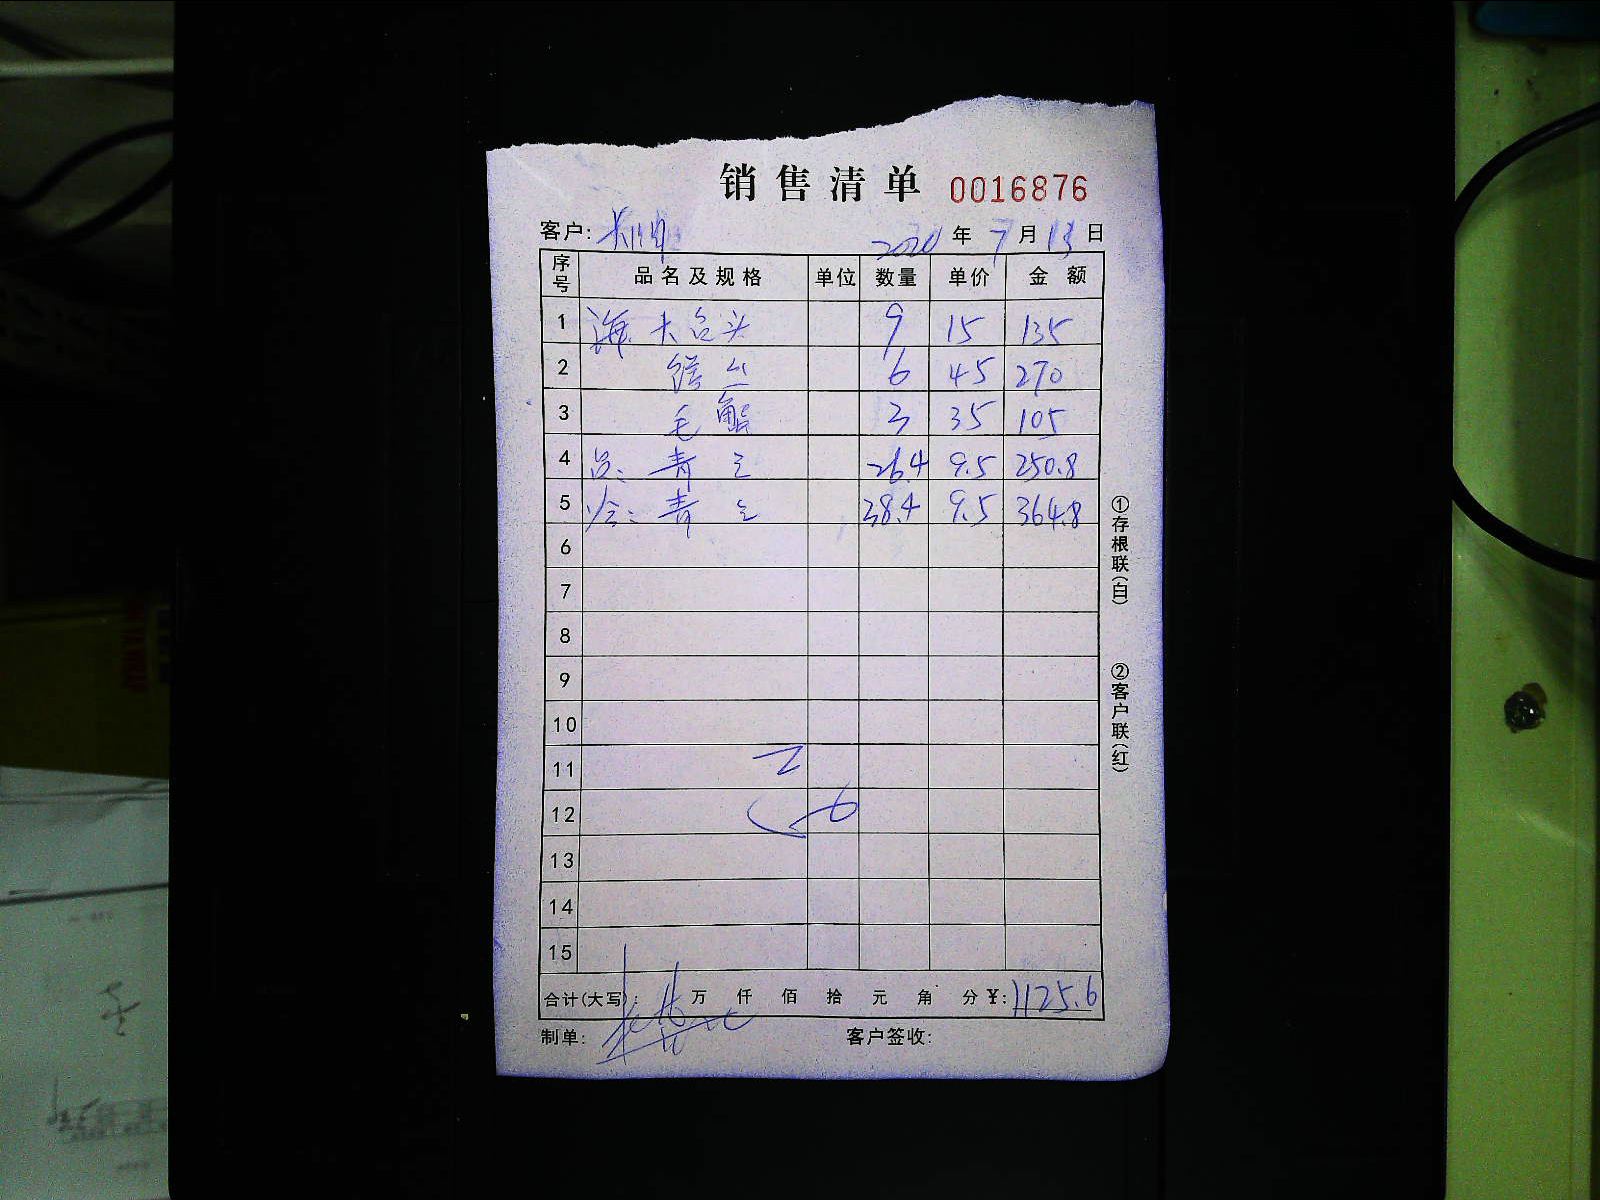 销售清单 0016876
客户: 2020 年 7 月 13 日
序号 品名及规格 单位 数量 单价 金额
1 海 大 头 9 15 135
2 6 45 270
3 毛蟹 3 35 105
4 青 26.4 9.5 250.8
5 青 38.4 9.5 364.8
6
7
8
9
10
11
12
13
14
15
合计(大写): 万 仟 佰 拾 元 角 分 ¥: 1125.6
制单: 客户签收:
①存根联(白)
②客户联(红)